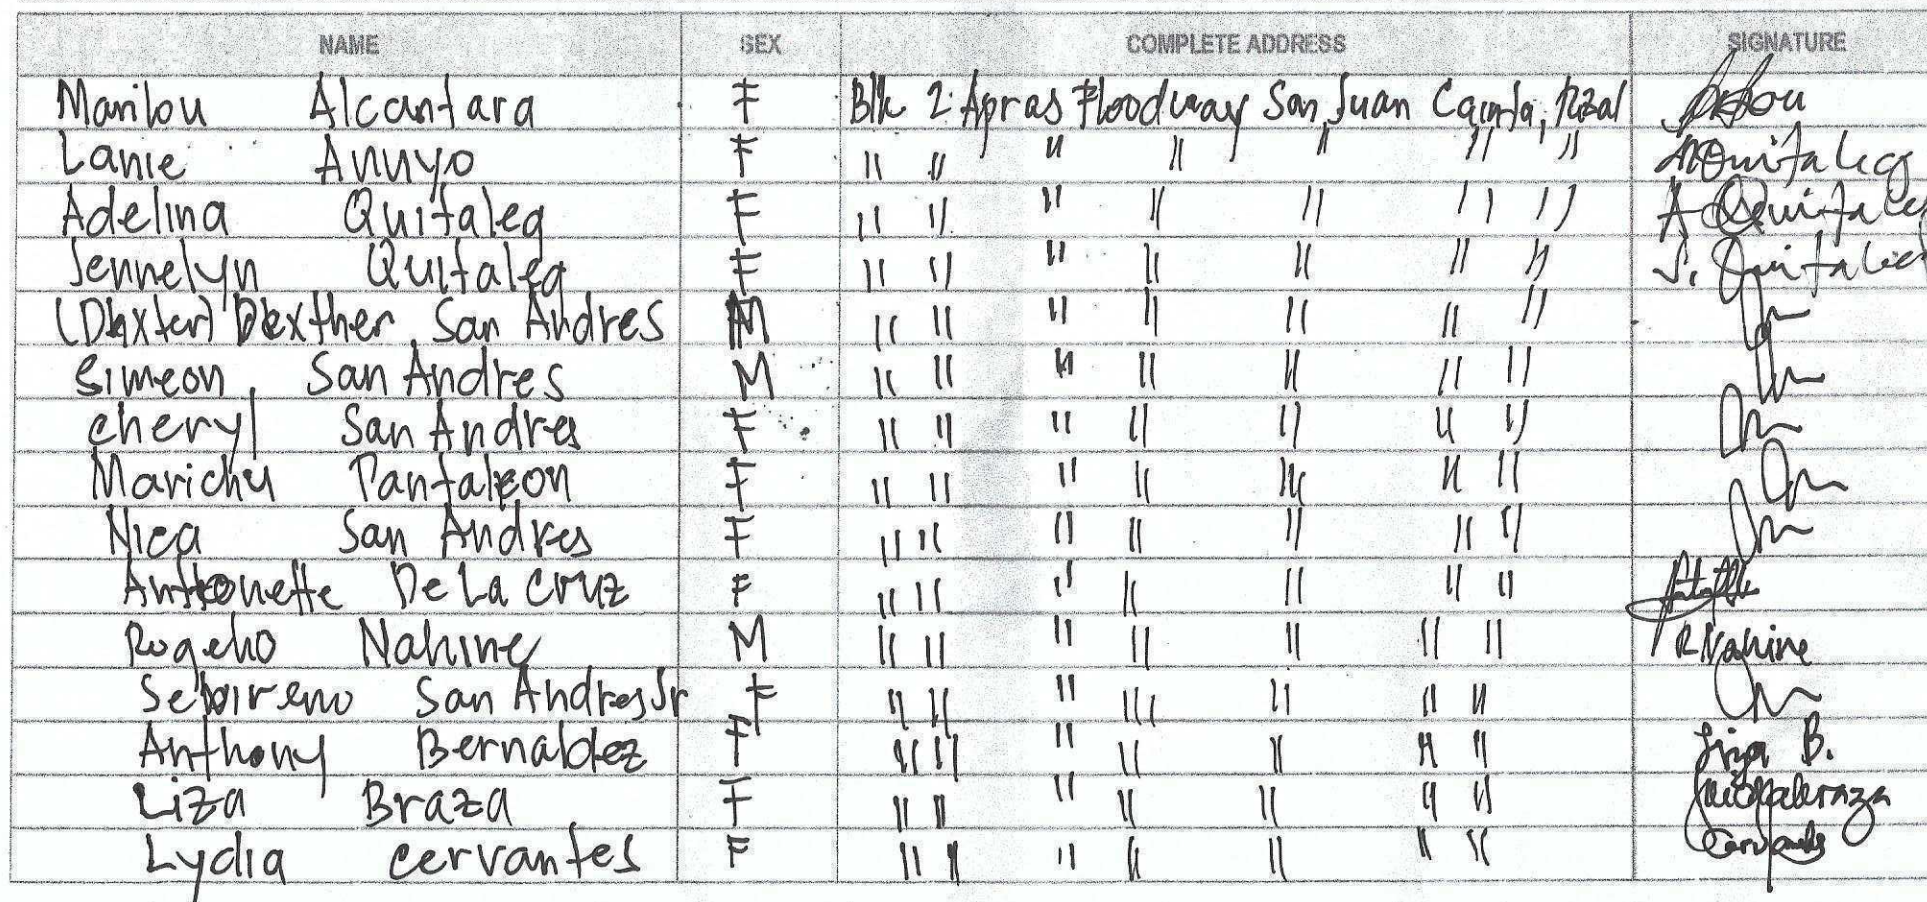 NAME SEX COMPLETE ADDRESS SIGNATURE
Marilou Alcantara F Blk 2 Apras Floodway San Juan Cainta, Rizal
Lanie Anuyo F " " " " " " "
Adelina Quitaleg F " " " " " " " A Quitaleg
Jennelyn Quitaleg F " " " " " " " J. Quitaleg
(Dexter) Dexther San Andres M " " " " " " "
Simeon San Andres M " " " " " " "
Cheryl San Andres F " " " " " " "
Marichu Pantaleon F " " " " " " "
Nica San Andres F " " " " " " "
Antonette De La Cruz F " " " " " " "
Rogelio Nahine M " " " " " " " RNahine
San Andres Jr F " " " " " " "
Anthony Bernaldez F " " " " " " " B.
Liza Braza F " " " " " " "
Lydia Cervantes F " " " " " " " Cervantes